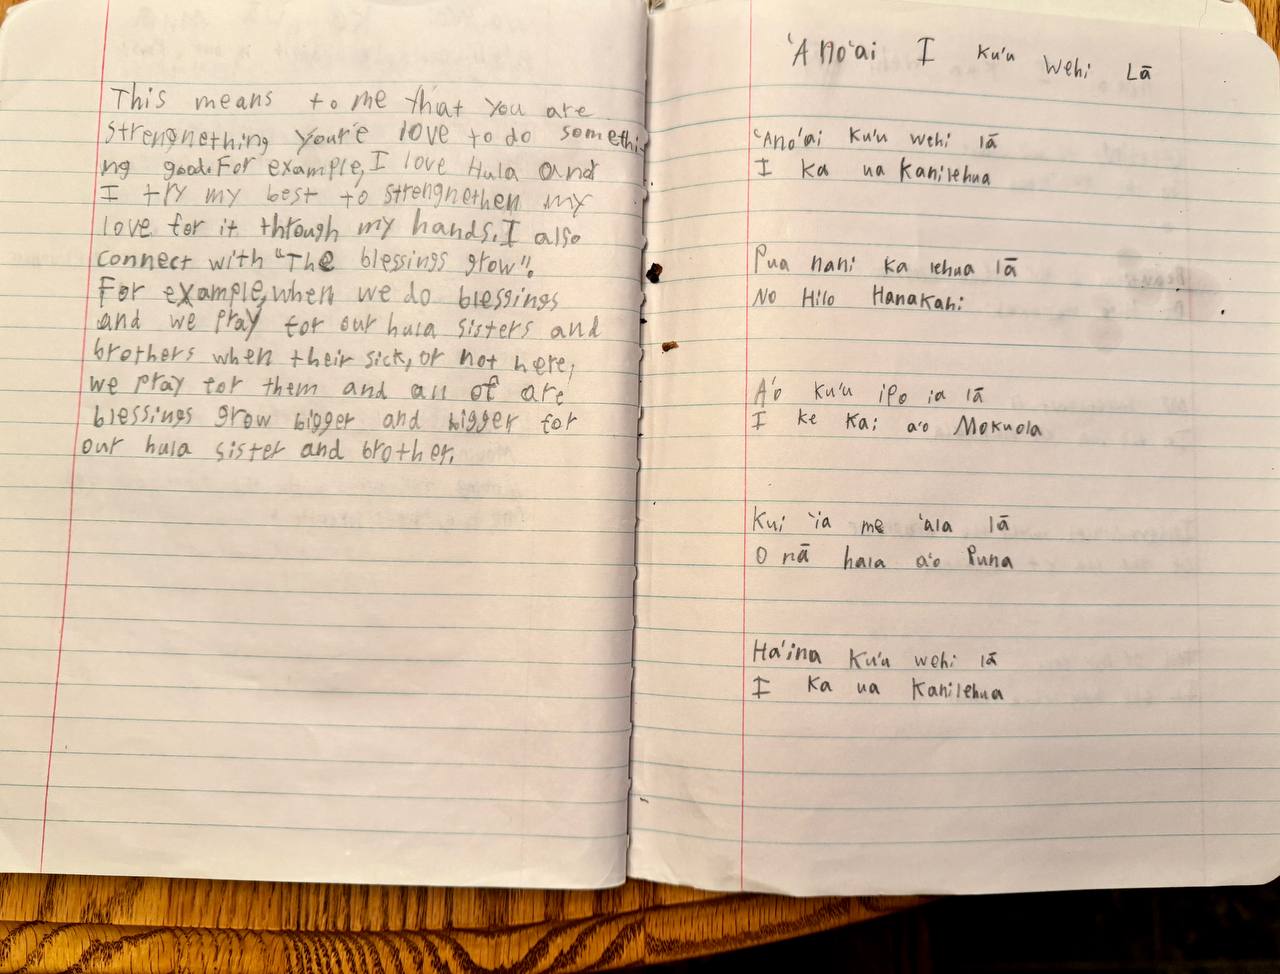 This means to me that you are
strengnething your'e love to do somethi
ng good. For example, I love Hula and
I try my best to strengnethen my
love for it through my hands. I also
connect with "The blessings grow".
For example, when we do blessings
and we pray for our hula sisters and
brothers when their sick, or not here,
we pray for them and all of are
blessings grow bigger and bigger for
our hula sister and brother.
'Ano'ai I Ku'u Wehi Lā
'Ano'ai Ku'u wehi lā
I Ka ua Kanilehua
Pua nani ka lehua lā
No Hilo Hanakahi
A'o Ku'u ipo ia lā
I ke Kai a'o Mokuola
Kui 'ia me 'ala lā
O nā hala a'o Puna
Ha'ina Ku'u wehi lā
I Ka ua Kanilehua